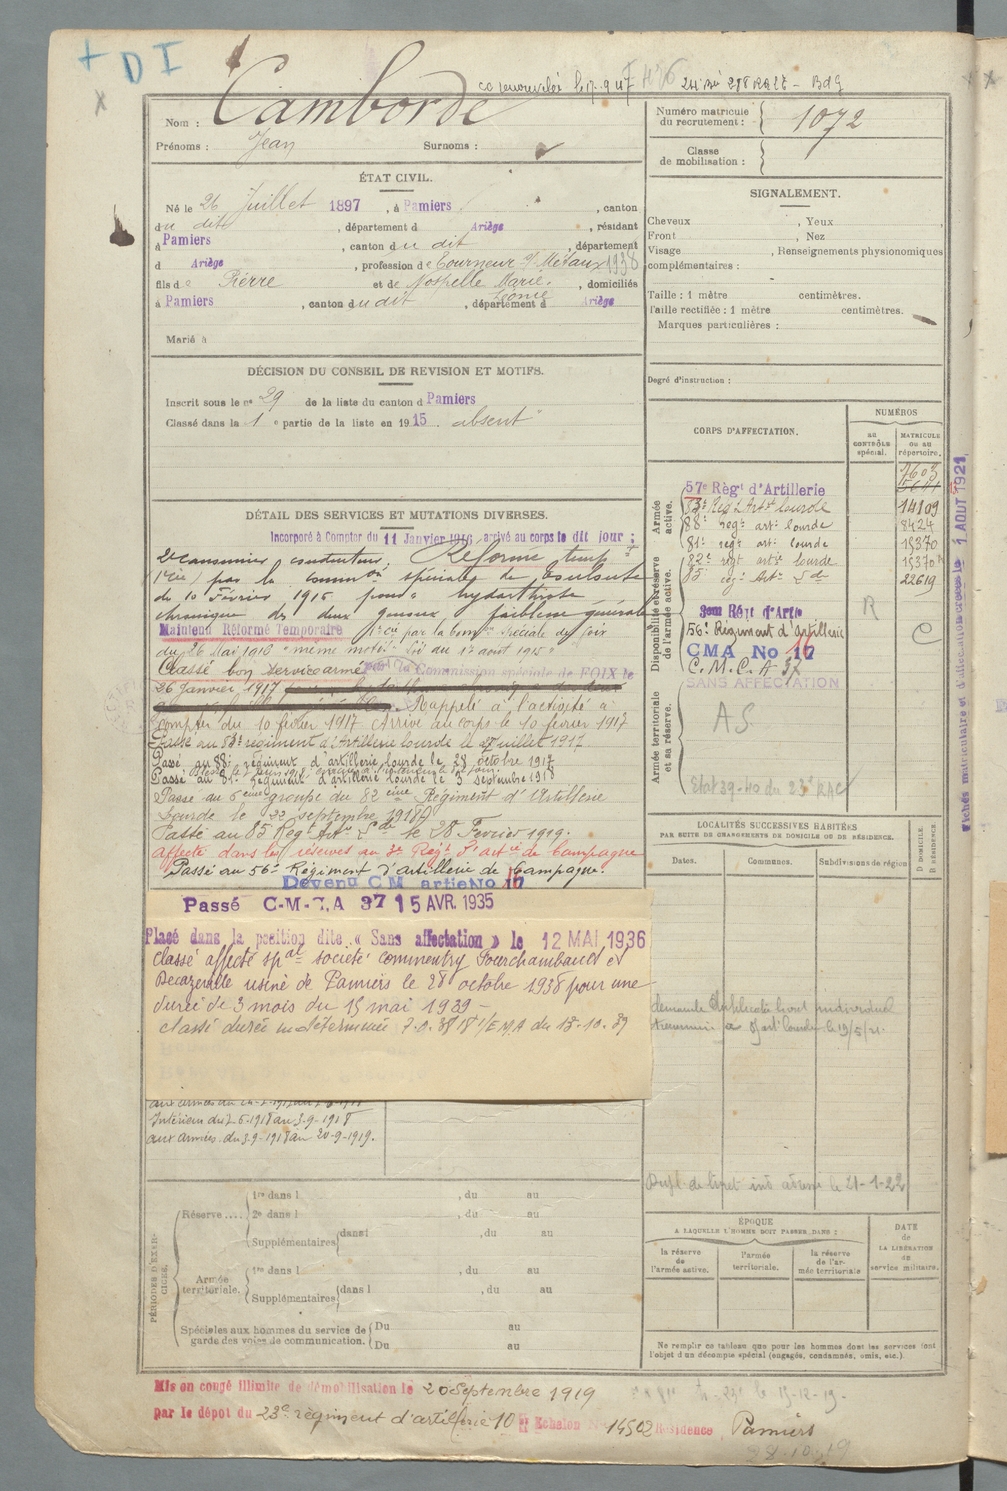 + D I
Camborde
Nom :
Prénoms : Jean Surnoms :
Numéro matricule du recrutement : 1072
Classe de mobilisation :
ÉTAT CIVIL.
Né le 26 Juillet 1897, à Pamiers, canton
du dit, département d Ariège, résidant
à Pamiers, canton du dit, département
d Ariège, profession de Tourneur s/ Métaux 1938
fils de Pierre et de Nospelle Marie, domiciliés
Léonie
à Pamiers, canton du dit, département d Ariège
Marié à
SIGNALEMENT.
Cheveux , Yeux ,
Front , Nez
Visage , Renseignements physionomiques
complémentaires :
Taille : 1 mètre centimètres.
Taille rectifiée : 1 mètre centimètres.
Marques particulières :
Degré d'instruction :
DÉCISION DU CONSEIL DE REVISION ET MOTIFS.
Inscrit sous le no 29 de la liste du canton d Pamiers
Classé dans la 1e partie de la liste en 1915 absent
DÉTAIL DES SERVICES ET MUTATIONS DIVERSES.
Incorporé à Compter du 11 Janvier 1916 arrivé au corps le dit jour ;
2e canonnier conducteur. Réformé temp
par la common spéciale de Toulouse
du 10 Février 1916 pour hydarthrose
chronique des deux genoux faiblesse générale
Maintenu Réformé Temporaire par la Comon Spéciale de Foix
du 26 Mai 1916 "même motif"
Classé bon service armé par la Commission spéciale de FOIX le
26 janvier 1917
Rappelé à l'activité à
compter du 10 février 1917 Arrivé au corps le 10 février 1917
Passé au 83e régiment d'Artillerie lourde le 27 juillet 1917
Passé au 88e régiment d'artillerie lourde le 28 octobre 1917
Passé au 81e régiment d'artillerie lourde le 3 septembre 1918
Passé au 6ème groupe du 82ème Régiment d'Artillerie
Lourde le 22 septembre 1918
Passé au 85 Régt Artie Lde le 28 Février 1919.
Affecté dans les réserves au 3e Régt d'artie de Campagne
Passé au 56e Régiment d'artillerie de Campagne.
Devenu C M artie No 17
Passé C-M-C,A 37 15 AVR. 1935
Placé dans la position dite « Sans affectation » le 12 MAI 1936
Classé affecté spal société commentry Fourchambault et
Decazeville usine de Pamiers le 28 octobre 1938 pour une
durée de 3 mois du 15 mai 1939 -
classé durée indéterminée
Intérieur du 2-6-1918 au 3-9-1918
aux armées du 3-9-1918 au 20-9-1919.
CORPS D'AFFECTATION.
NUMÉROS
AU CONTRÔLE spécial.
MATRICULE OU AU répertoire.
Armée active.
57e Régt d'Artillerie
83e Régt Artie lourde 14109
88e regt art lourde 8424
81e regt art lourde 15370
82e regt artie lourde 15370
85 regt Artie Lde 22619
Disponibilité et réserve de l'armée active.
3em Rért d'Artie
56e Régiment d'Artillerie
CMA No 17
C.M.C.A 37
R
C
SANS AFFECTATION
Armée territoriale et sa réserve.
A S
LOCALITÉS SUCCESSIVES HABITÉES
PAR SUITE DE CHANGEMENTS DE DOMICILE OU DE RÉSIDENCE.
Dates. Communes. Subdivisions de région
D DOMICILE. R RÉSIDENCE.
Dupl de livret ind adressé le 21-1-22
PÉRIODES D'EXERCICES.
Réserve....
1re dans l , du au
2e dans l , du au
Supplémentaires dans l , du au
Armée territoriale.
1re dans l , du au
Supplémentaires dans l , du au
Spéciales aux hommes du service de garde des voies de communication.
Du au
Du au
ÉPOQUE
A LAQUELLE L'HOMME DOIT PASSER DANS :
la réserve de l'armée active.
l'armée territoriale.
la réserve de l'armée territoriale
DATE de LA LIBÉRATION du service militaire.
Ne remplir ce tableau que pour les hommes dont les services font
l'objet d'un décompte spécial (engagés, condamnés, omis, etc.).
Mis en congé illimité de démobilisation le 20 Septembre 1919
par le dépôt du 23e régiment d'artillerie 10 Echelon 14502 Résidence Pamiers